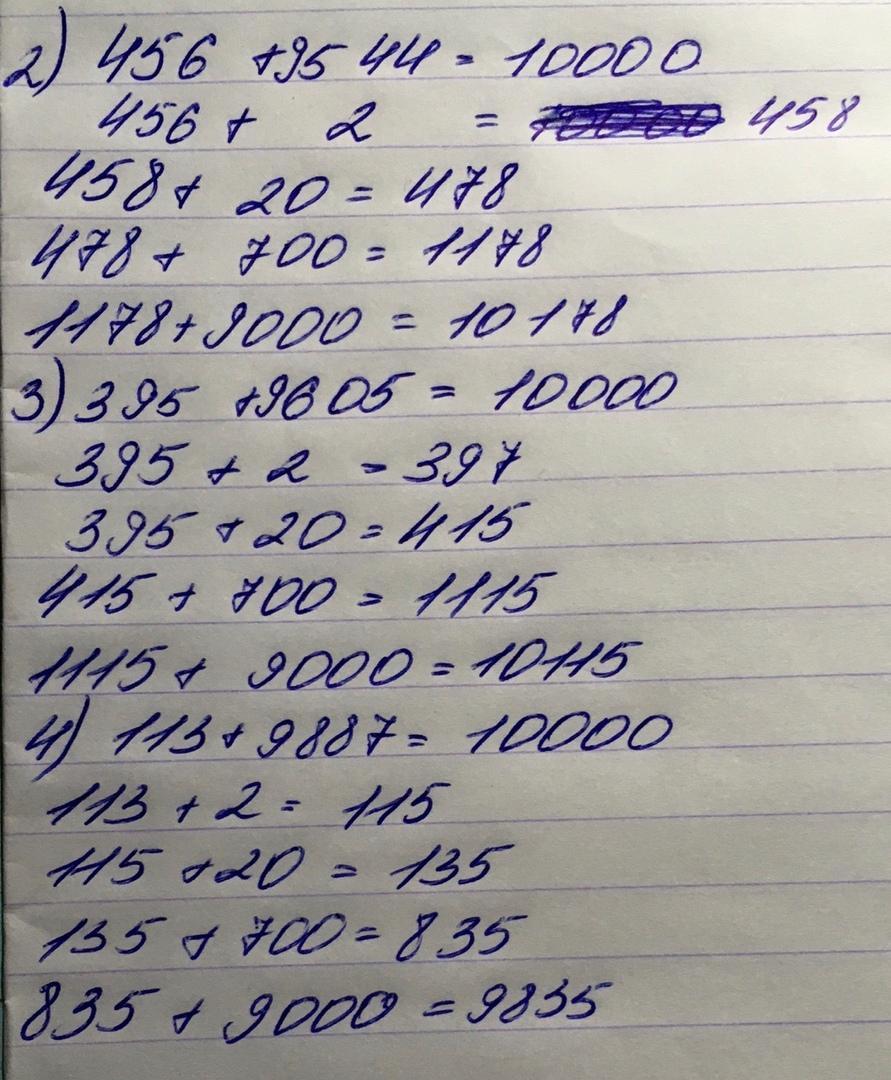 2) 456 +9544 = 10000
456 + 2 = 458
458 + 20 = 478
478 + 700 = 1178
1178 + 9000 = 10178
3) 395 +9605 = 10000
395 + 2 = 397
395 + 20 = 415
415 + 700 = 1115
1115 + 9000 = 10115
4) 113 + 9887 = 10000
113 + 2 = 115
115 +20 = 135
135 + 700 = 835
835 + 9000 = 9835